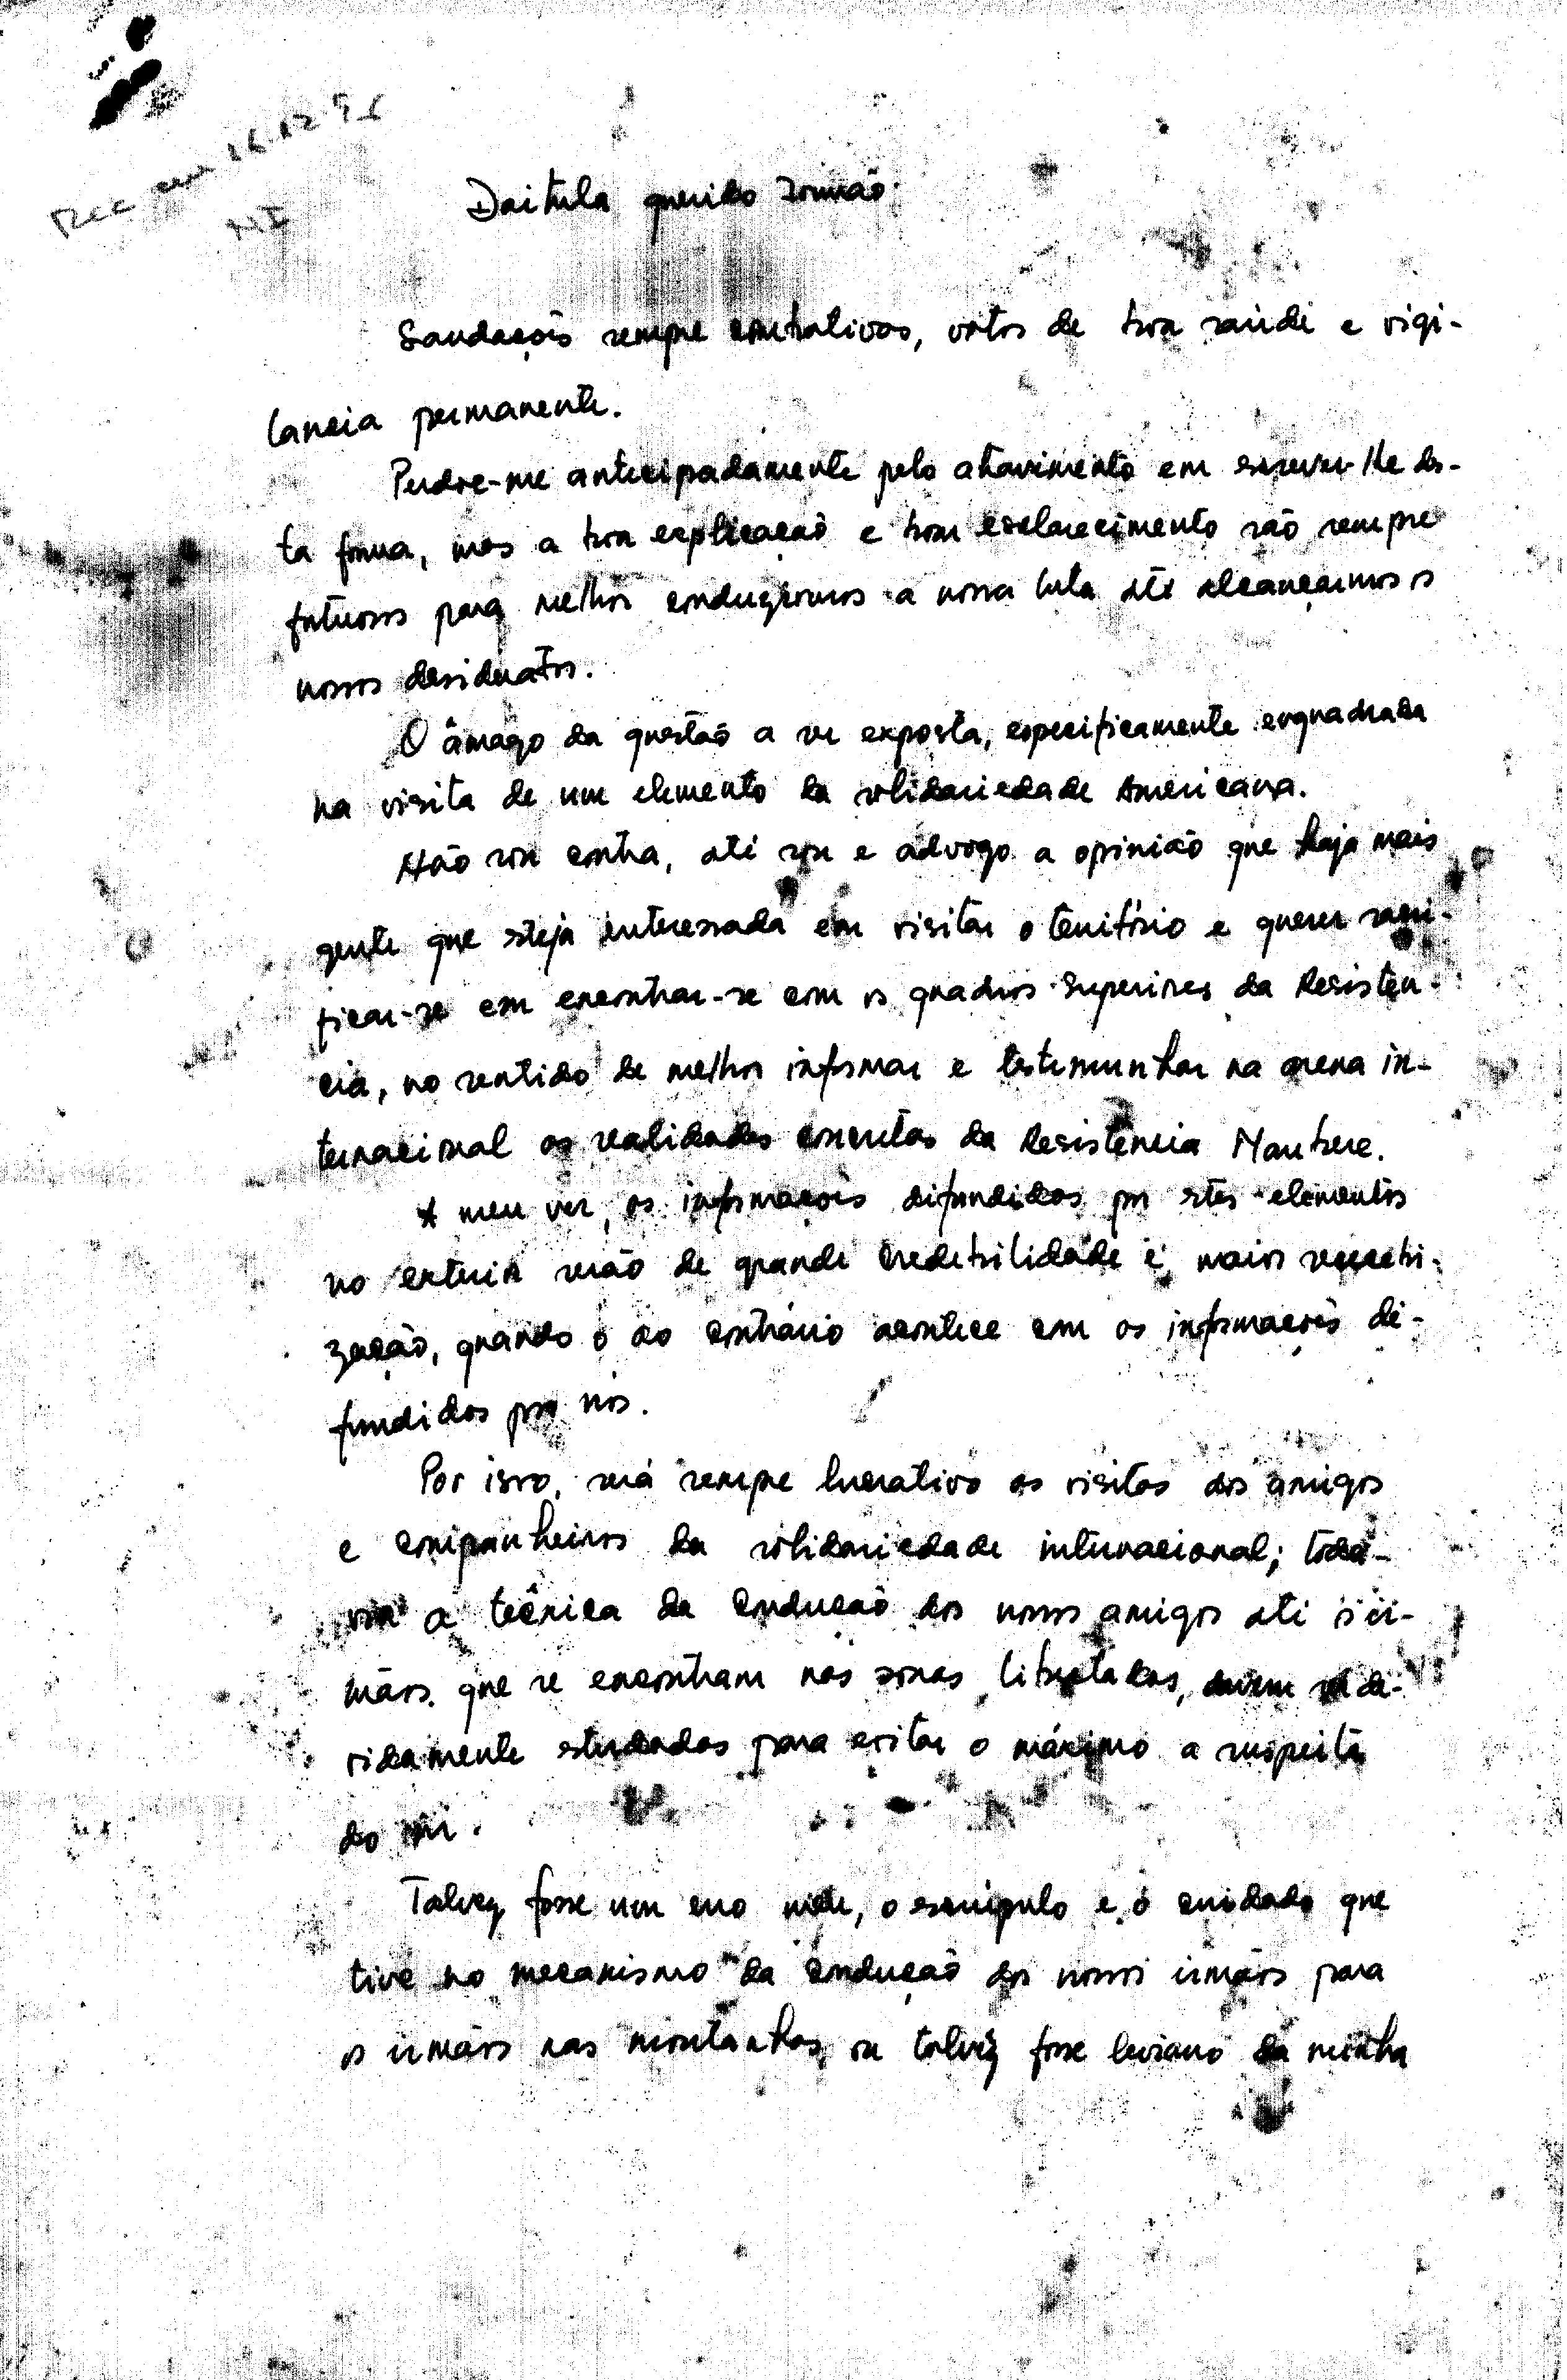 Rec em 26.12.95
NI
Daitula querido Irmão
Saudações sempre combativas, votos de boa saúde e vigi-
lancia permanente.
Perdoe-me antecipadamente pelo atrevimento em escrever-lhe des-
ta forma, mas a boa explicação e bom esclarecimento são sempre
frutuosos para melhor conduzirmos a nossa luta até alcançarmos os
nossos desideratos.
O âmago da questão a ser exposta, especificamente enquadrada
na visita de um elemento da solidariedade Americana.
Não sou contra, até sou e advogo a opinião que haja mais
gente que esteja interessada em visitar o território e querer sacri-
ficar-se em encontrar-se com os quadros Superiores da Resistên-
cia, no sentido de melhor informar e testemunhar na arena in-
ternacional as realidades concretas da Resistência Maubere.
A meu ver, as informações difundidas por estes elementos
no exterior serão de grande credebilidade e maior receti-
zação, quando o ao contrário acontece com as informações di-
fundidas por nós.
Por isso, será sempre lucrativo as visitas dos amigos
e companheiros da solidariedade internacional; toda-
via a técnica da condução dos nossos amigos até os ir-
mãos que se encontram nas zonas libertadas, devem ser de-
vidamente estudadas para evitar o máximo a suspeita
do
Talvez fosse um erro meu, o escrúpulo e o cuidado que
tive no mecanismo da condução dos nossos irmãos para
os irmãos nas montanhas, ou talvez fosse leviano da minha